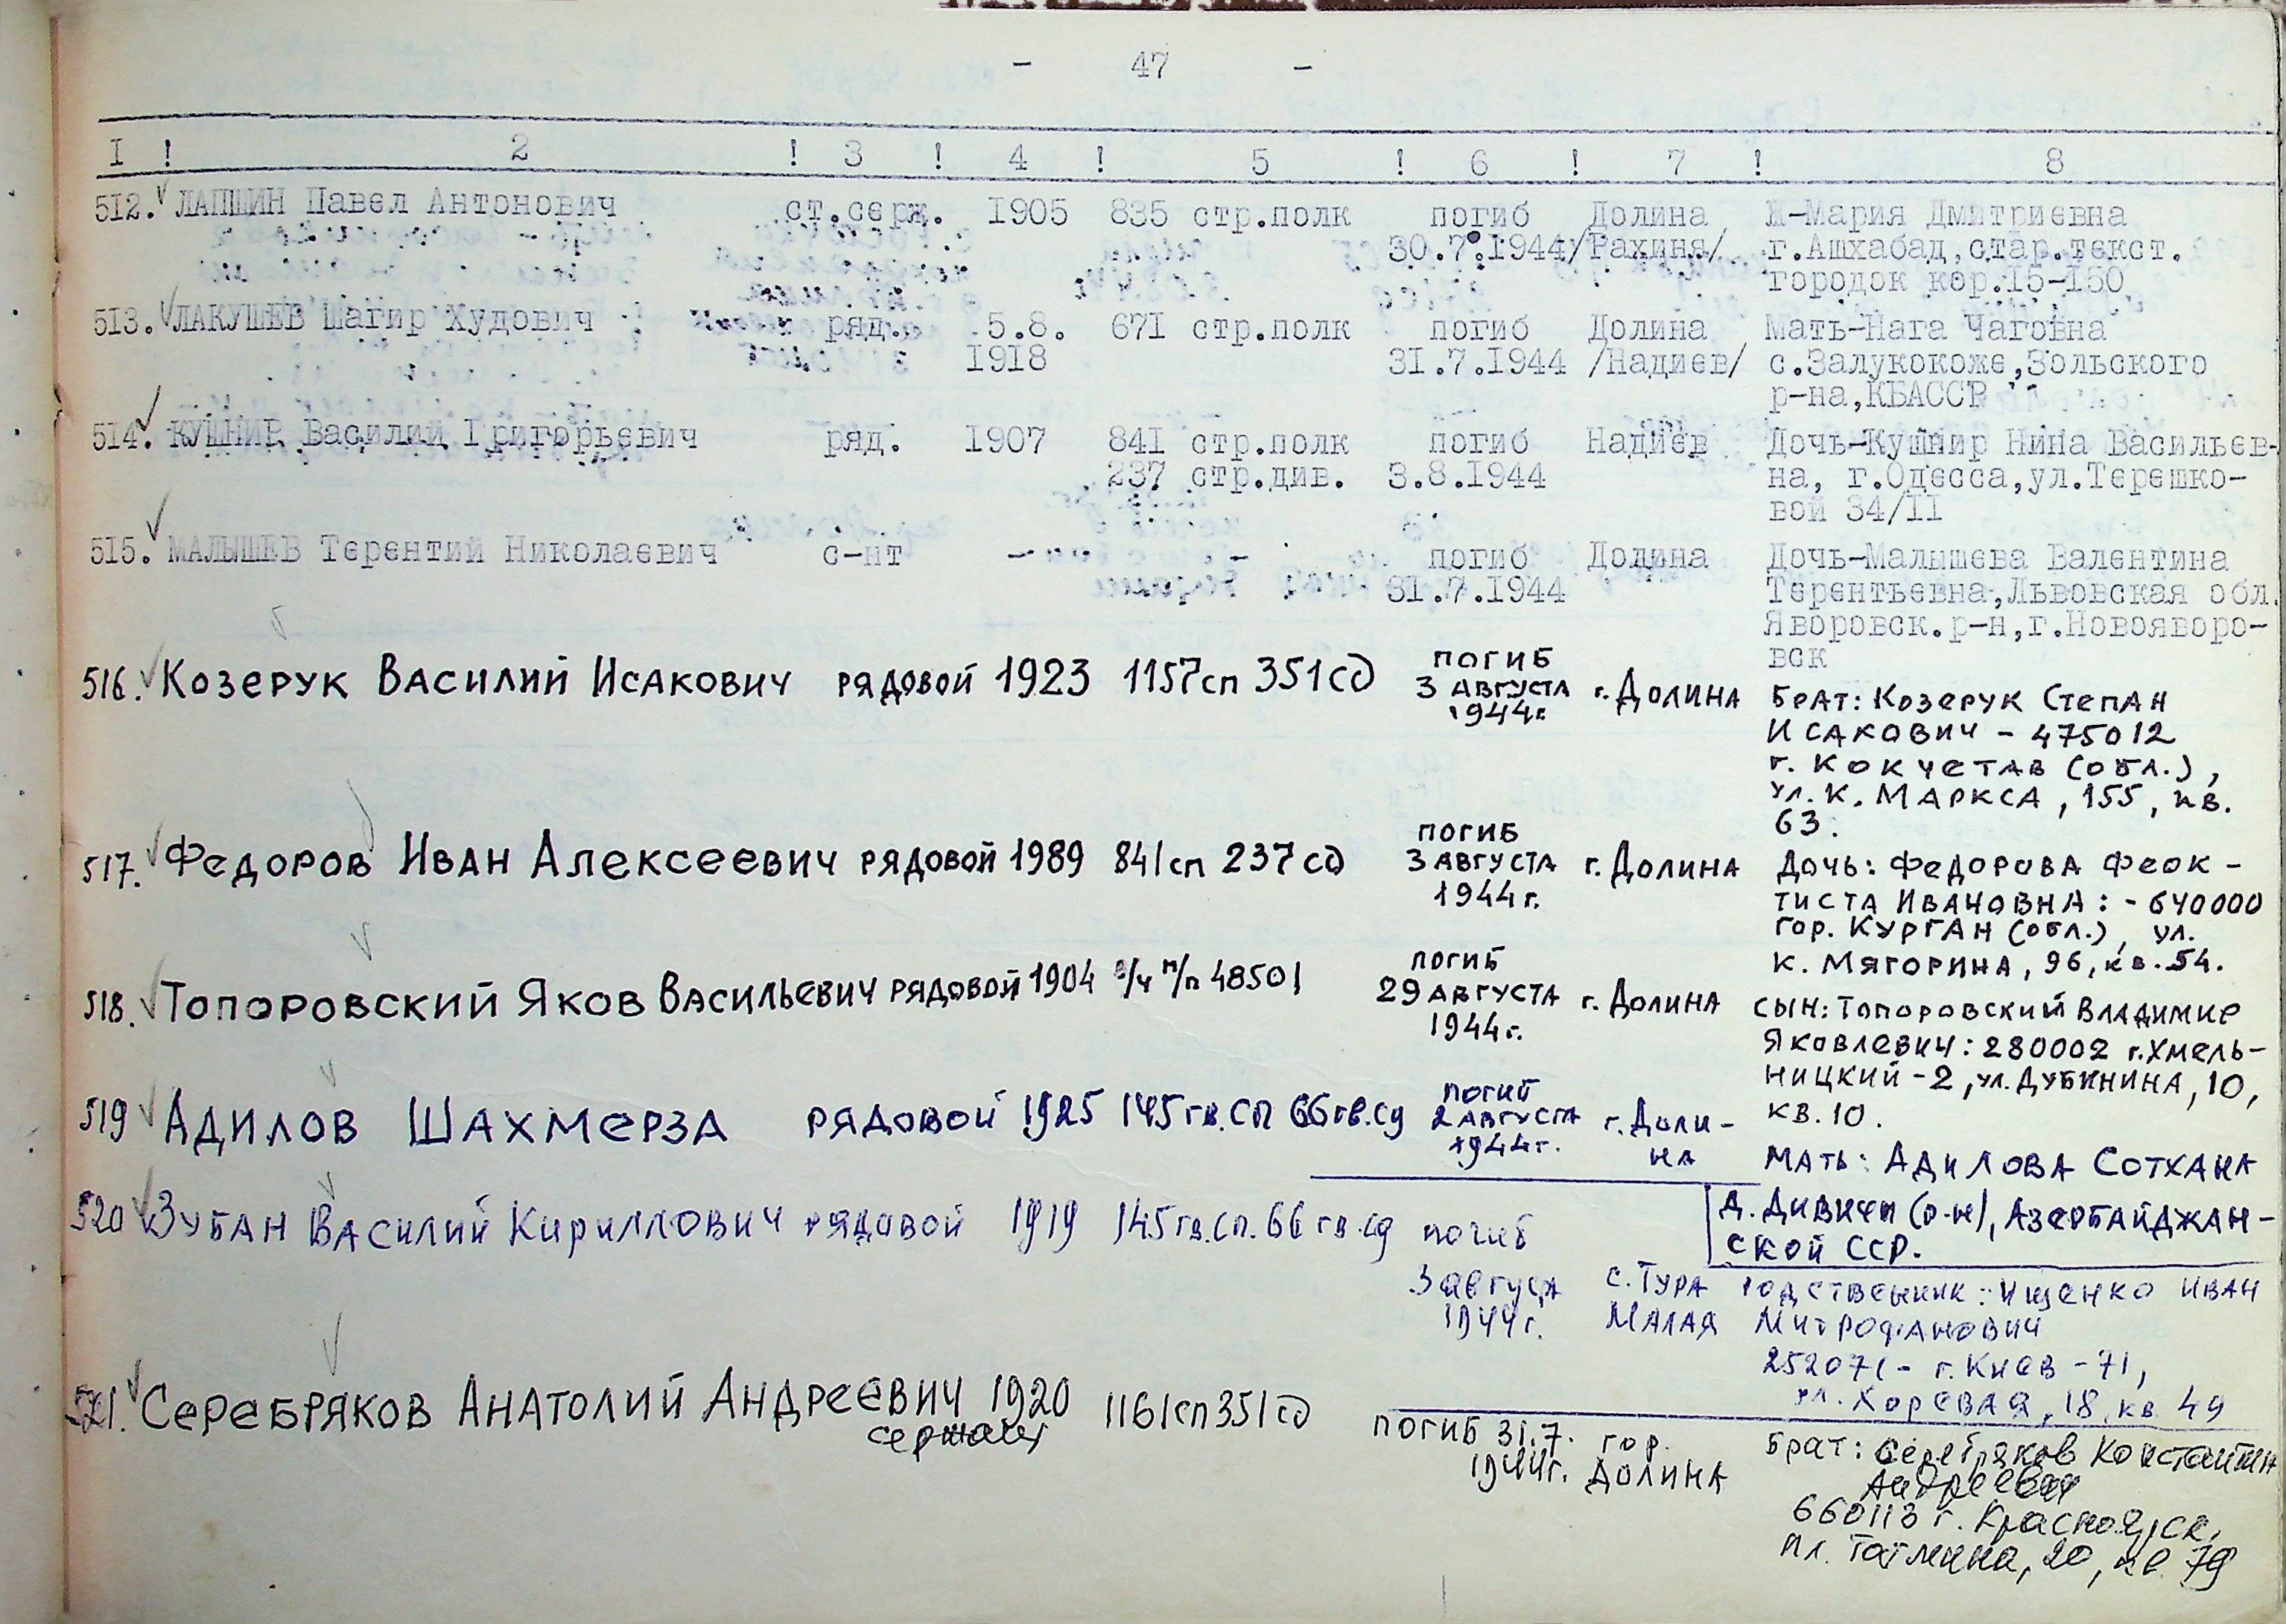 - 47 -
I ! 2 ! 3 ! 4 ! 5 ! 6 ! 7 ! 8
512. ЛАПШИН Павел Антонович ст.серж. 1905 835 стр.полк погиб Долина Ж-Мария Дмитриевна
30.7.1944 /Рахиня/ г.Ашхабад,стар.текст.
городок кор.15-150
513. ЛАКУШЕВ Шагир Худович ряд. 5.8. 671 стр.полк погиб Долина Мать-Нага Чаговна
1918 31.7.1944 /Надиев/ с.Залукокоже,Зольского
р-на,КБАССР
514. КУШНИР Василий Григорьевич ряд. 1907 841 стр.полк погиб Надиев Дочь-Кушнир Нина Васильев-
237 стр.див. 3.8.1944 на, г.Одесса,ул.Терешко-
вой 34/II
515. МАЛЫШЕВ Терентий Николаевич с-нт - - погиб Долина Дочь-Малышева Валентина
31.7.1944 Терентьевна,Львовская обл.
Яворовск.р-н,г.Новояворо-
вск
516. Козерук Василий Исакович рядовой 1923 1157сп 351сд погиб г.Долина Брат: Козерук Степан
3 августа Исакович - 475012
1944г. г. Кокчетав (обл.),
ул. К. Маркса, 155, кв.
63.
517. Федоров Иван Алексеевич рядовой 1989 841сп 237сд погиб г. Долина Дочь: Федорова Феок-
3 августа тиста Ивановна: - 640000
1944г. гор. Курган (обл.), ул.
К. Мягорина, 96, кв. 54.
518. Топоровский Яков Васильевич рядовой 1904 в/ч п/п 48501 погиб г. Долина Сын: Топоровский Владимир
29 августа Яковлевич: 280002 г.Хмель-
1944г. ницкий-2, ул.Дубинина, 10,
кв. 10.
519 Адилов Шахмерза рядовой 1925 145гв.сп 66гв.сд погиб г.Доли- Мать: Адилова Сотхана
2 августа на д. Дивичи (р-н), Азербайджан-
1944г. ской ССР.
520 Зубан Василий Кириллович рядовой 1919 145гв.сп. 66 гв.сд погиб с. Тура Родственник: Ищенко Иван
3 августа Малая Митрофанович
1944г. 252071- г. Киев -71,
ул. Хоревая, 18, кв 49
521. Серебряков Анатолий Андреевич 1920 1161сп 351сд погиб 31.7. гор. Брат: Серебряков Константин
сержант 1944г. Долина Андреевич
660113 г. Красноярск,
кв 79